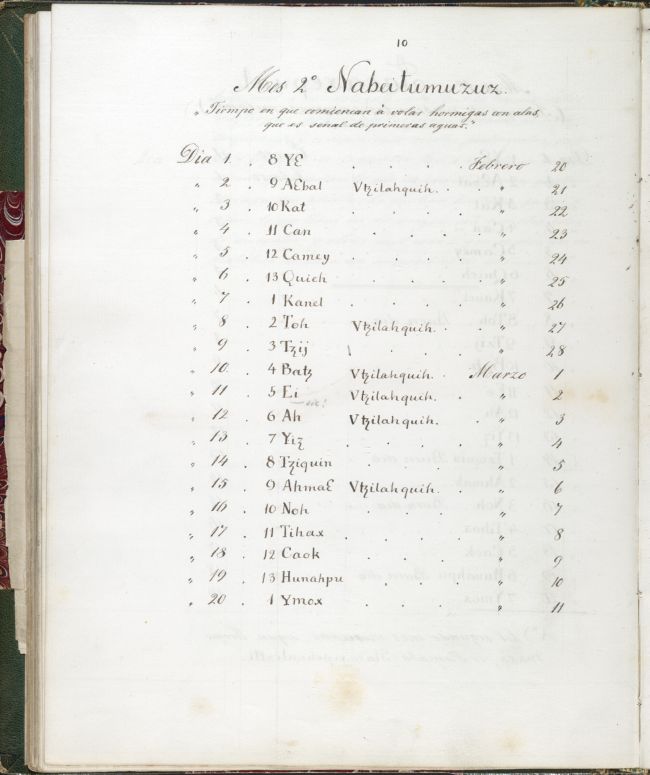 10
Mes 2° Nabeitumuzuz.
"Tiempo en que comiencan à volar hormigas con alas,
que es señal de primeras aguas."
Dia 1 . 8 YƐ . . . . Febrero 20
" 2 . 9 AƐbal Vtzilahquih. . " 21
" 3 . 10 Kat . . . . . " 22
" 4 . 11 Can . . . . " 23
" 5 . 12 Camey . . . . . " 24
" 6 . 13 Quieh . . . . " 25
" 7 . 1 Kanel . . . . . " 26
" 8 . 2 Toh Vtzilahquih. . " 27
" 9 . 3 Tzij . . . . " 28
" 10. . 4 Batz Vtzilahquih. . Marzo 1
" 11 . 5 Ei Vtzilahquih. . " 2
sic!
" 12 . 6 Ah Vtzilahquih. . " 3
" 13 . 7 Yiz . . . . . " 4
" 14 . 8 Tziquin . . . . " 5
" 15 . 9 AhmaƐ Vtzilahquih. . " 6
" 16 . 10 Noh . . . . " 7
" 17 . 11 Tihax . . . . . " 8
" 18 . 12 Caok . . . . " 9
" 19 . 13 Hunahpu . . . " 10
" 20 . 1 Ymox . . . . " 11